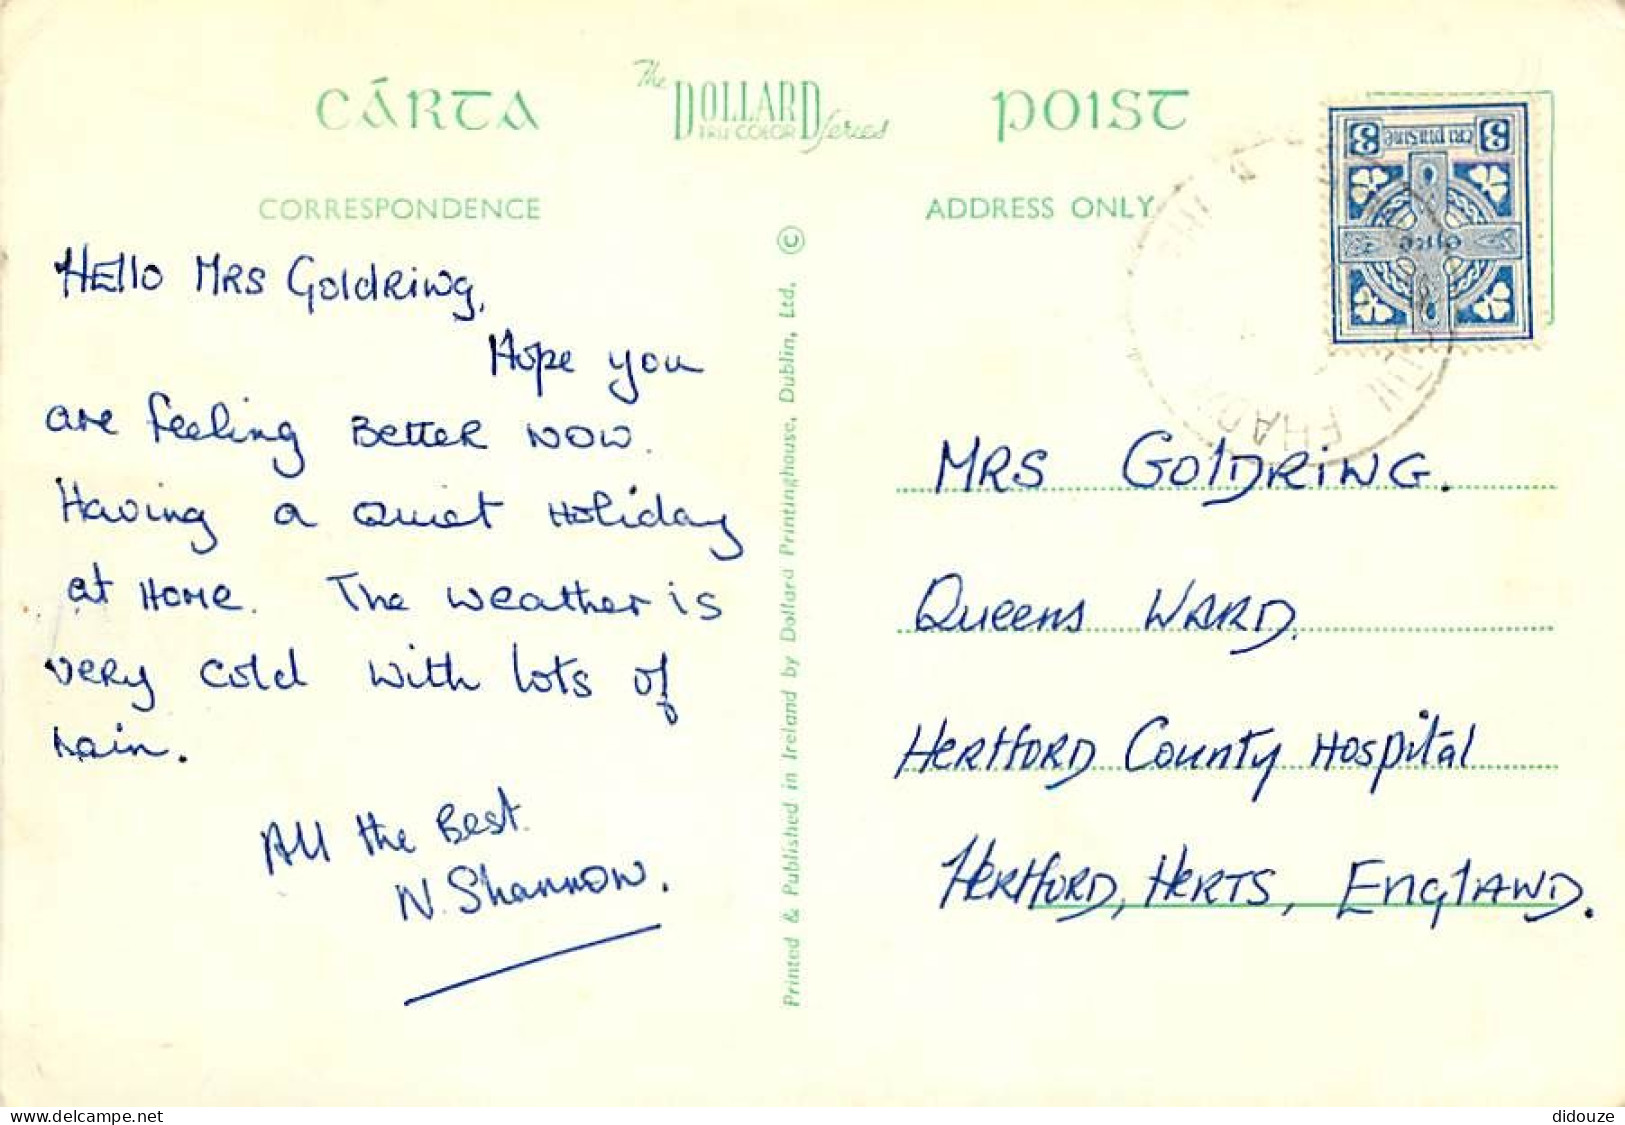 CÁRTA
The DOLLARD TRU-COLOR Series
POIST
CORRESPONDENCE
ADDRESS ONLY
HEllo MRS Goldring,
Hope you
are feeling BETTER NOW.
Having a Quiet Holiday
at HOME. The weather is
very cold with lots of
rain.
All the Best.
N. Shannon.
Printed & Published in Ireland by Dollard Printinghouse, Dublin, Ltd. ©
3 3
éire
MRS GOlDRiNG.
Queens WARD.
HERTFORD County Hospital
HERTFORD, HERTS, ENGlAND.
www.delcampe.net
didouze